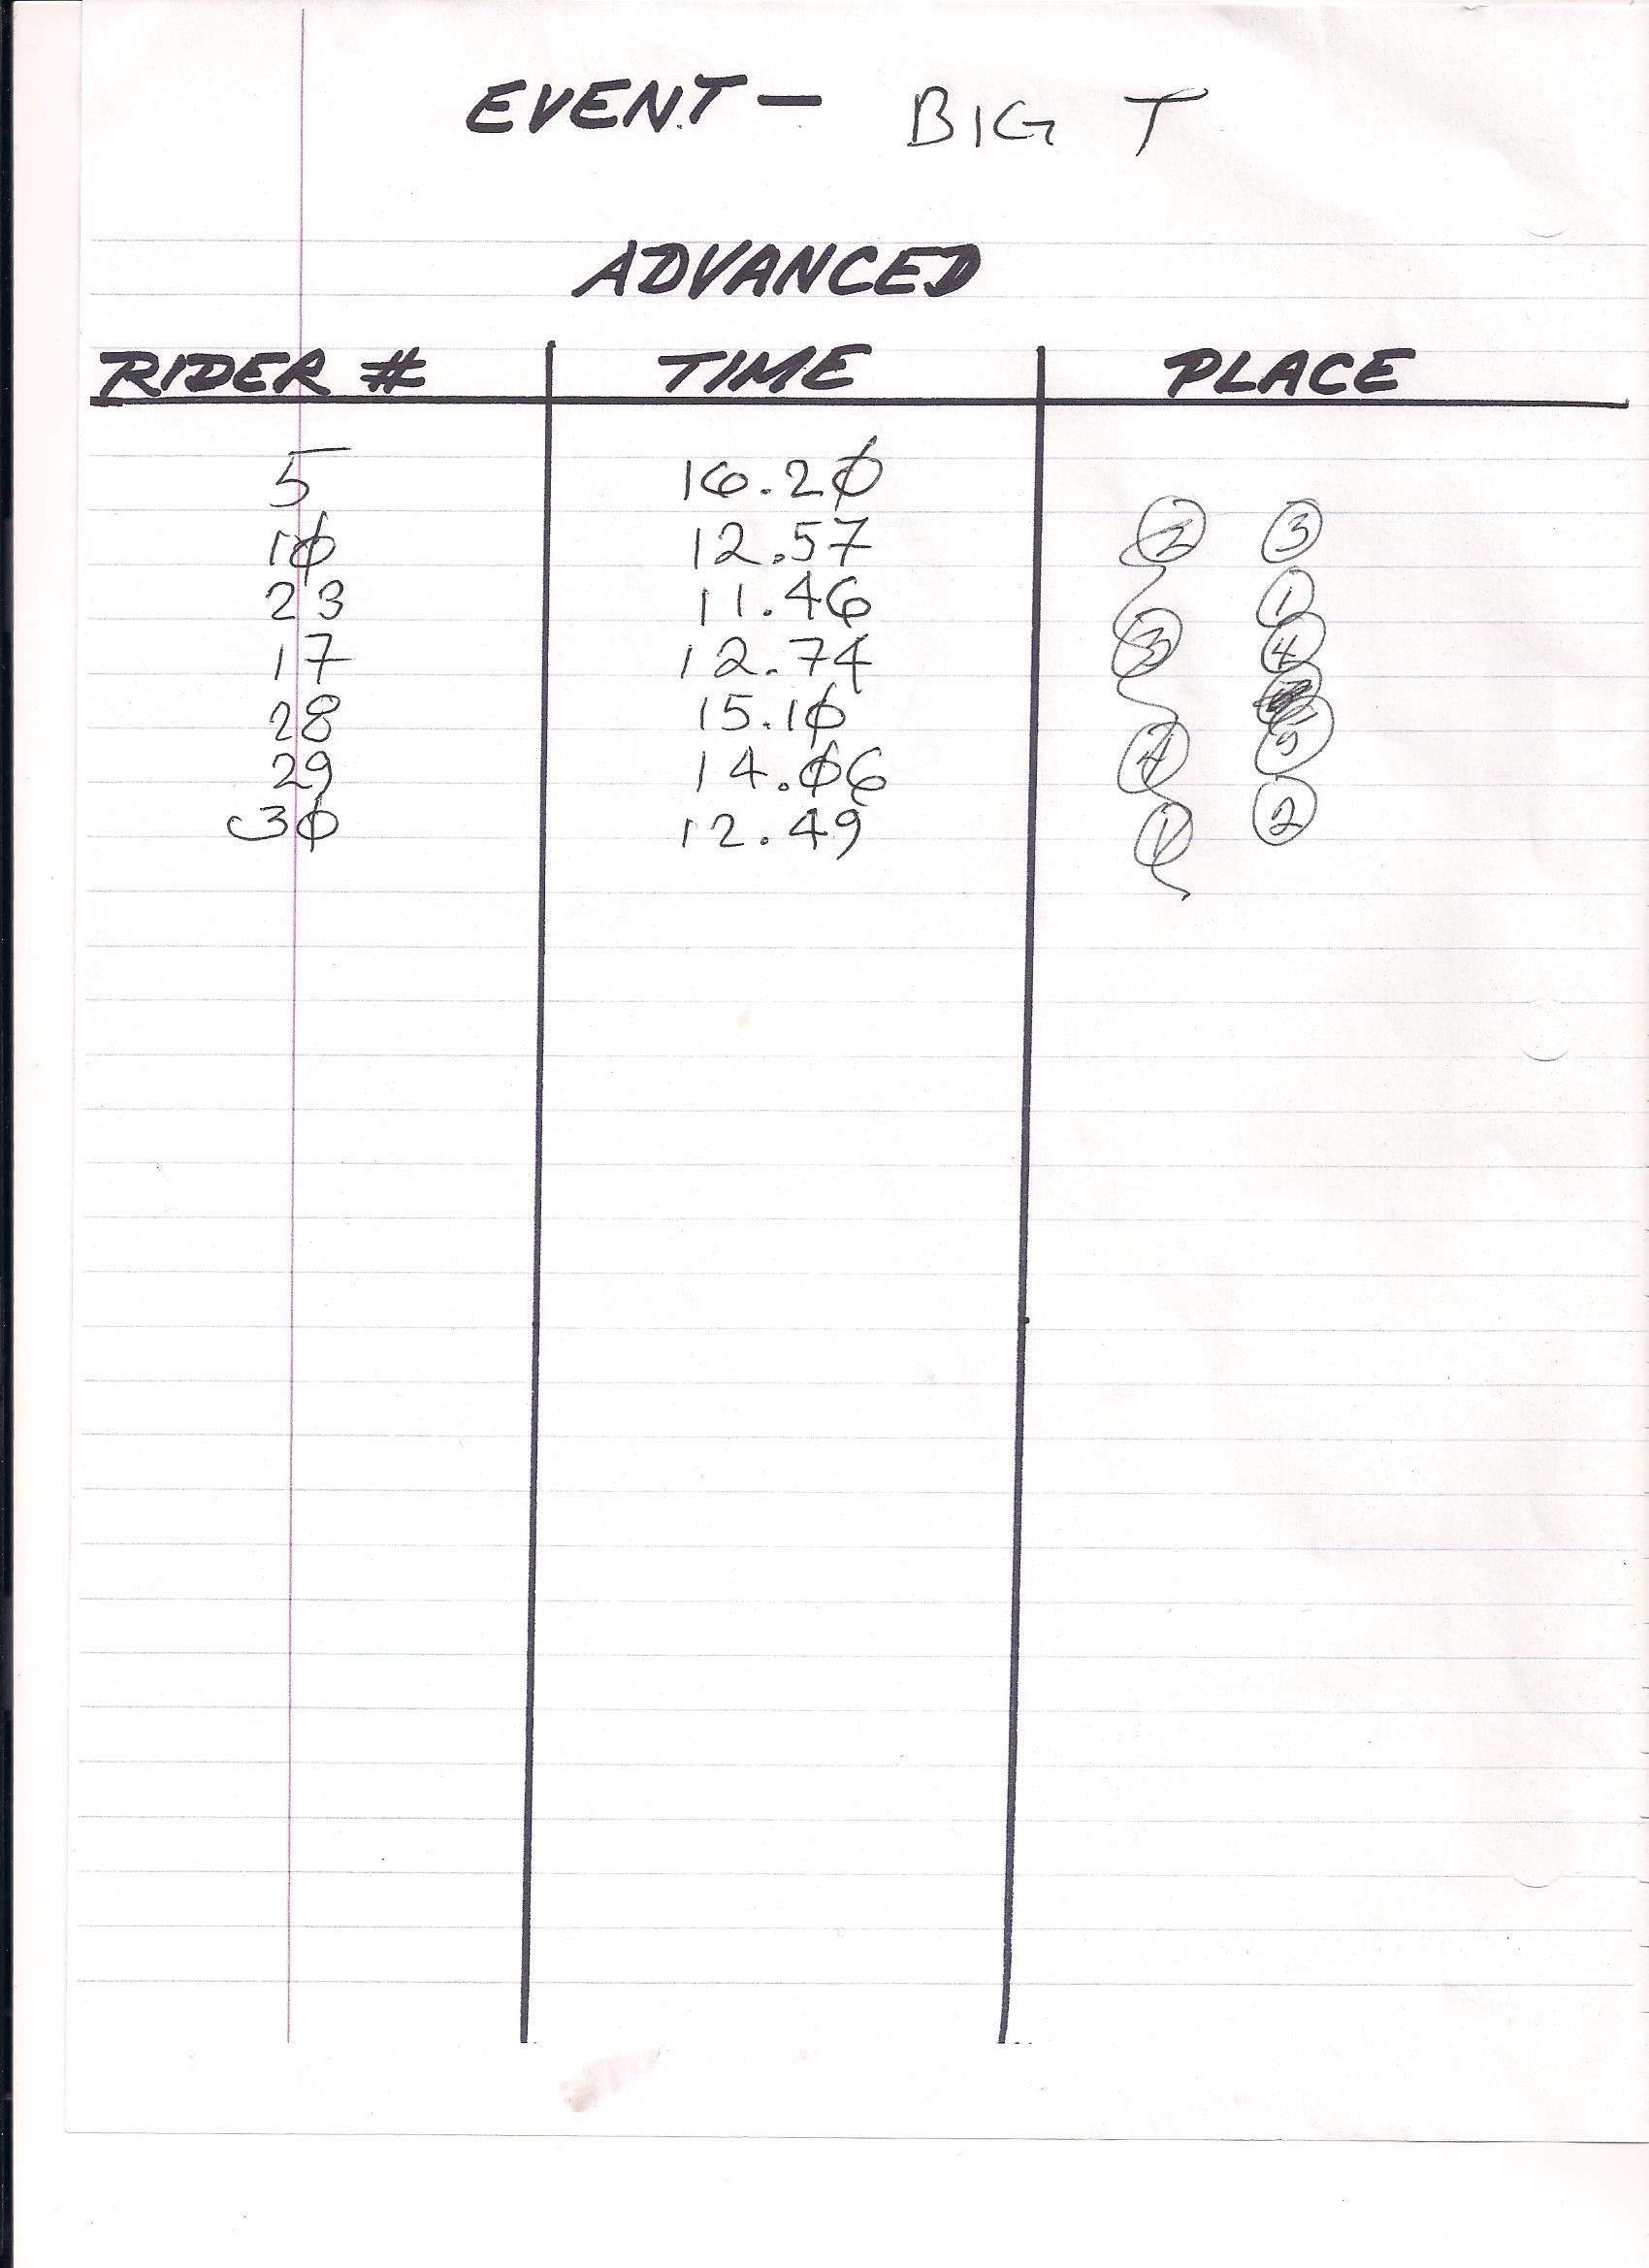 EVENT — BIG T
ADVANCED
RIDER # TIME PLACE
5 16.20
10 12.57 2 3
23 11.46 1
17 12.74 3 4
28 15.10
29 14.06 4 5
30 12.49 1 2